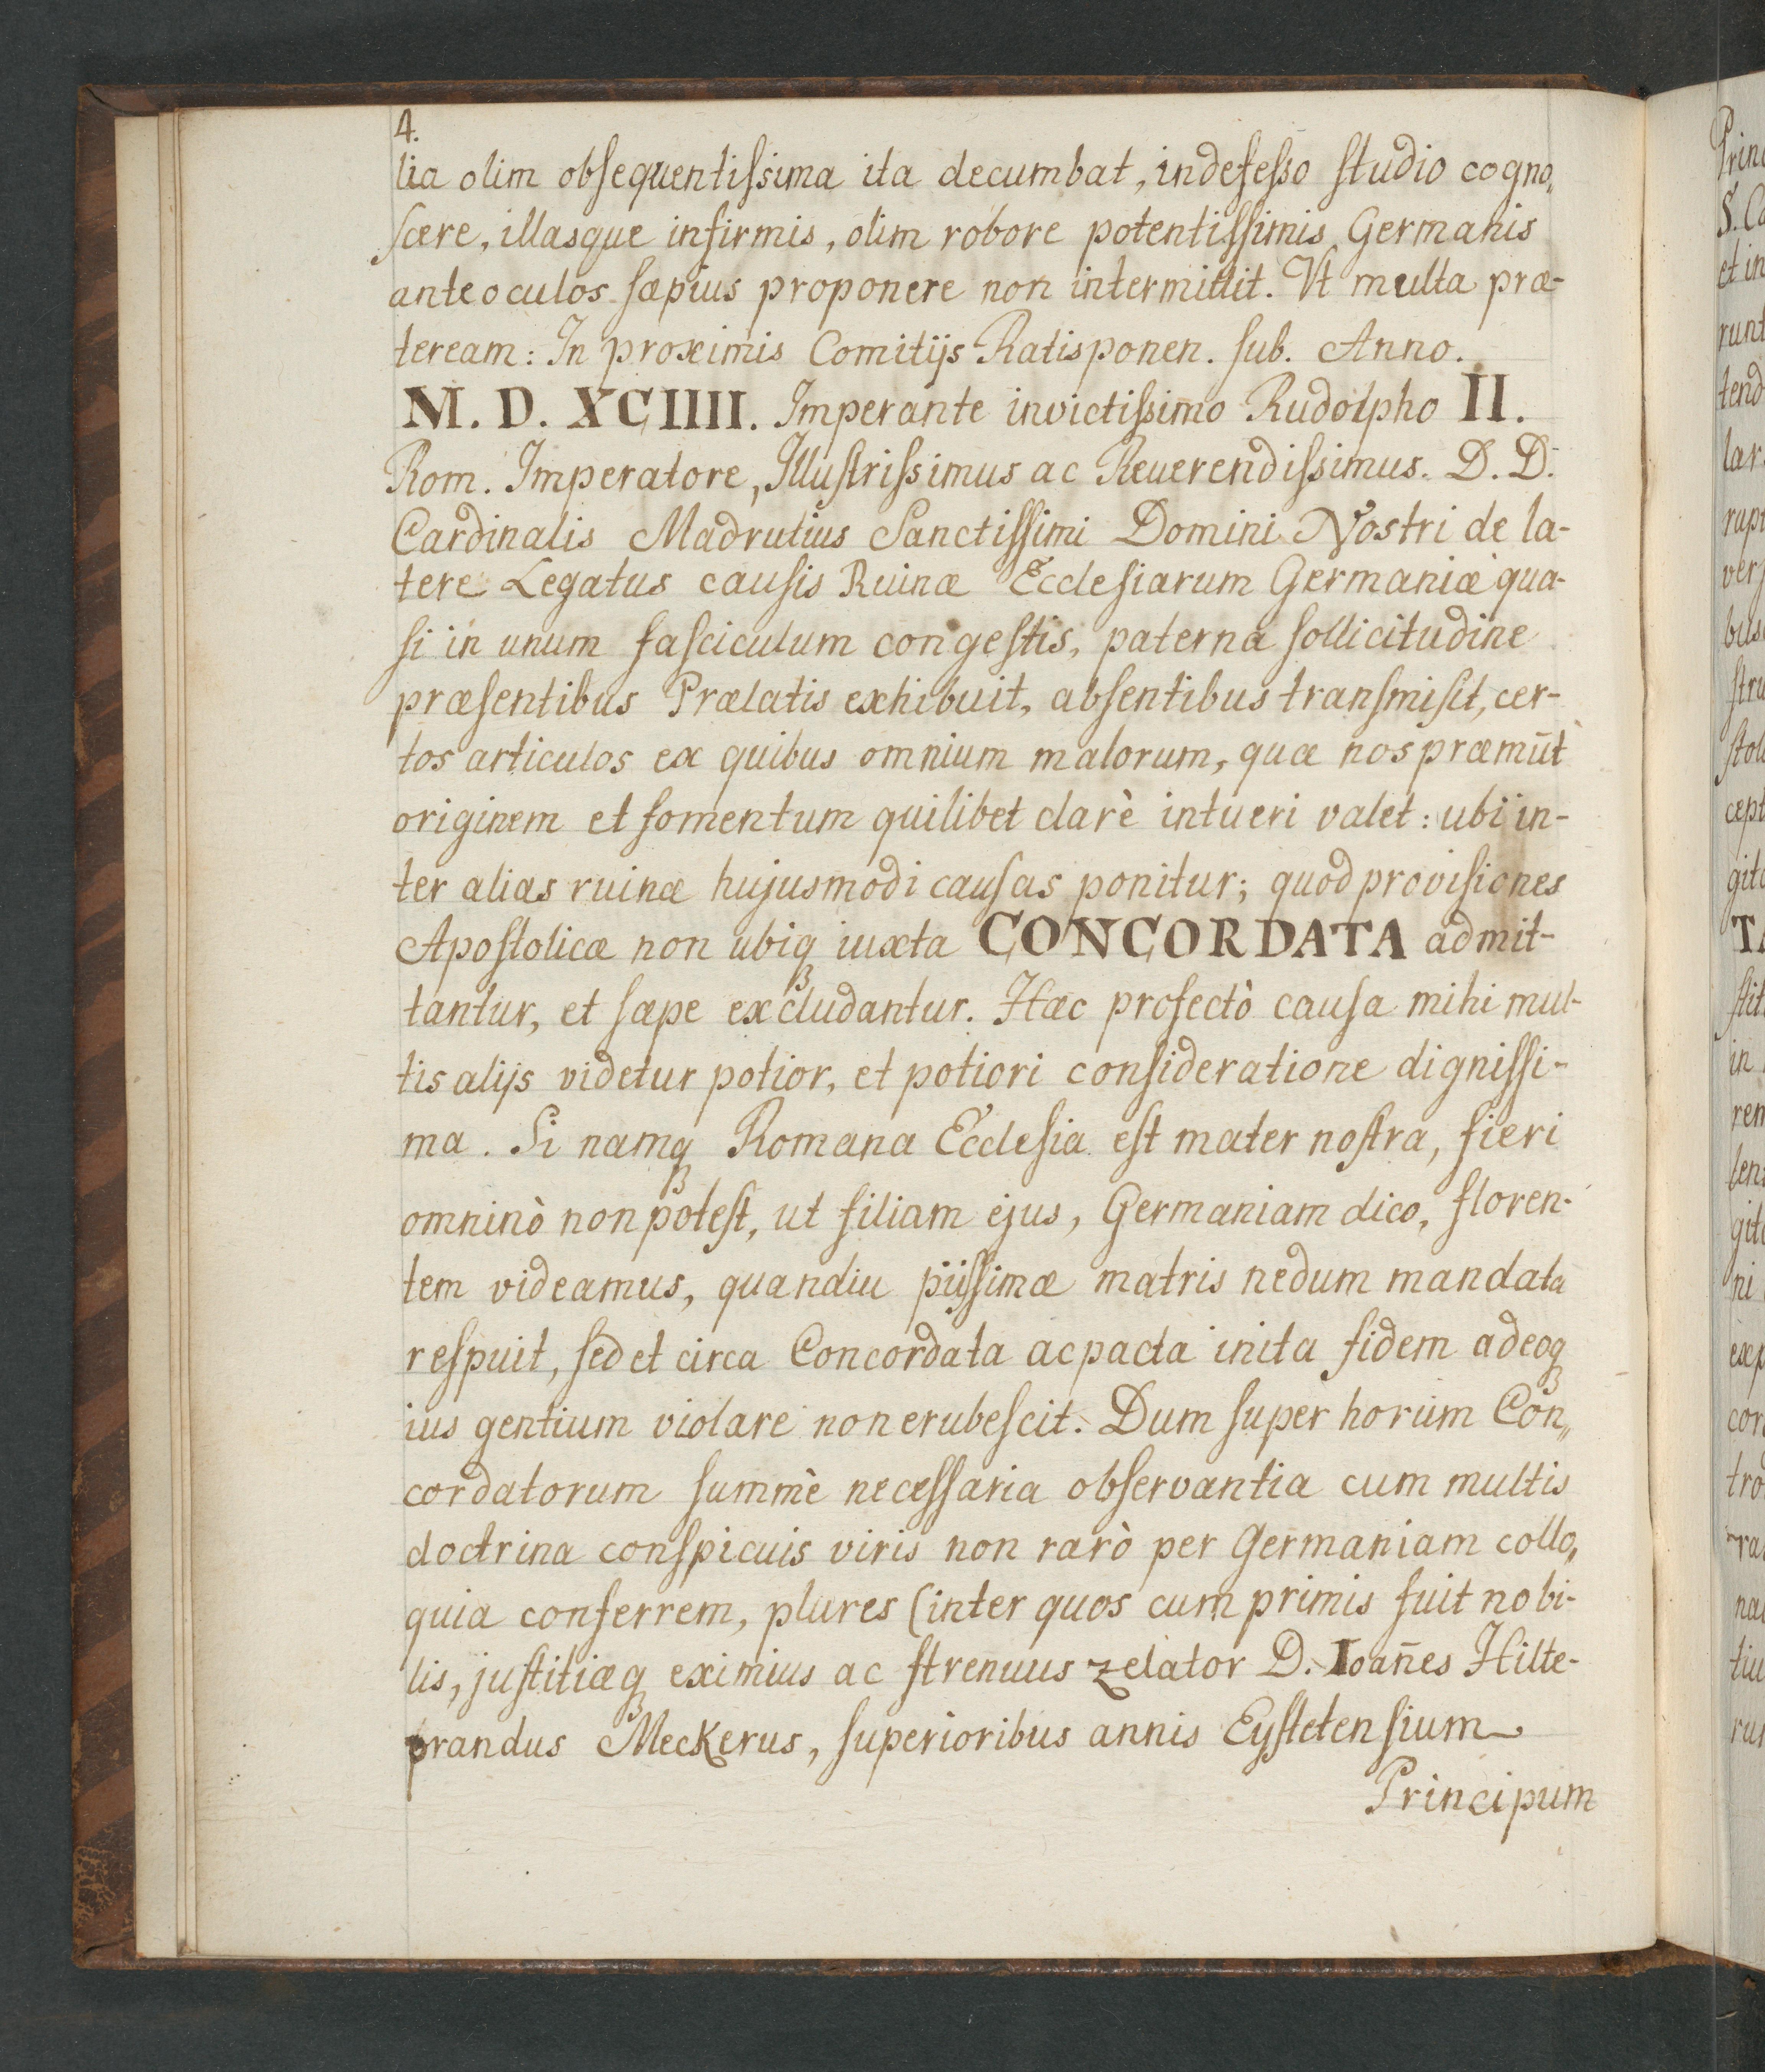 4.
lia olim obſequentiſsima ita decumbat, indefeſso ſtudio cogno„
ſcere, illasque infirmis, olim robore potentiſſimis Germanis
ante oculos sæpius proponere non intermittit. Vt multa præ-
teream: In proximis Comitijs Ratisponen. ſub. Anno.
M. D. XCIIII. Imperante invictiſsimo Rudolpho II.
Rom. Imperatore, Illuſtriſsimus ac Reuerendiſsimus. D. D.
Cardinalis Madrutius Sanctiſſimi Domini Nostri de la-
tere Legatus cauſis Ruinæ Eccleſiarum Germaniæ qua-
ſi in unum faſciculum congeſtis, paterna ſollicitudine
præſentibus Prælatis exhibuit, abſentibus tranſmiſit, cer-
tos articulos ex quibus omnium malorum, quæ nos præmūt
originem et fomentum quilibet clarè intueri valet: ubi in-
ter alias ruinæ hujusmodi cauſas ponitur; quod proviſiones
Apoſtolicæ non ubiqꝫ iuxta CONCORDATA admit-
tantur, et ſæpe excludantur. Hæc profectò cauſa mihi mul-
tis alijs videtur potior, et potiori conſideratione digniſſi-
ma. Si namqꝫ Romana Eccleſia eſt mater noſtra, fieri
omninò non poteſt, ut filiam ejus, Germaniam dico, floren-
tem videamus, quandiu piiſſimæ matris nedum mandata
reſpuit, ſed et circa Concordata ac pacta inita fidem adeoqꝫ
ius gentium violare non erubeſcit. Dum ſuper horum Con„
cordatorum ſummè neceſſaria obſervantia cum multis
doctrina conſpicuis viris non rarò per Germaniam collo„
quia conferrem, plures (inter quos cum primis fuit nobi-
lis, juſtitiæqꝫ eximius ac ſtrenuus zelator D. Ioañes Hilte-
prandus Meckerus, ſuperioribus annis Eyſtetenſium
Principum